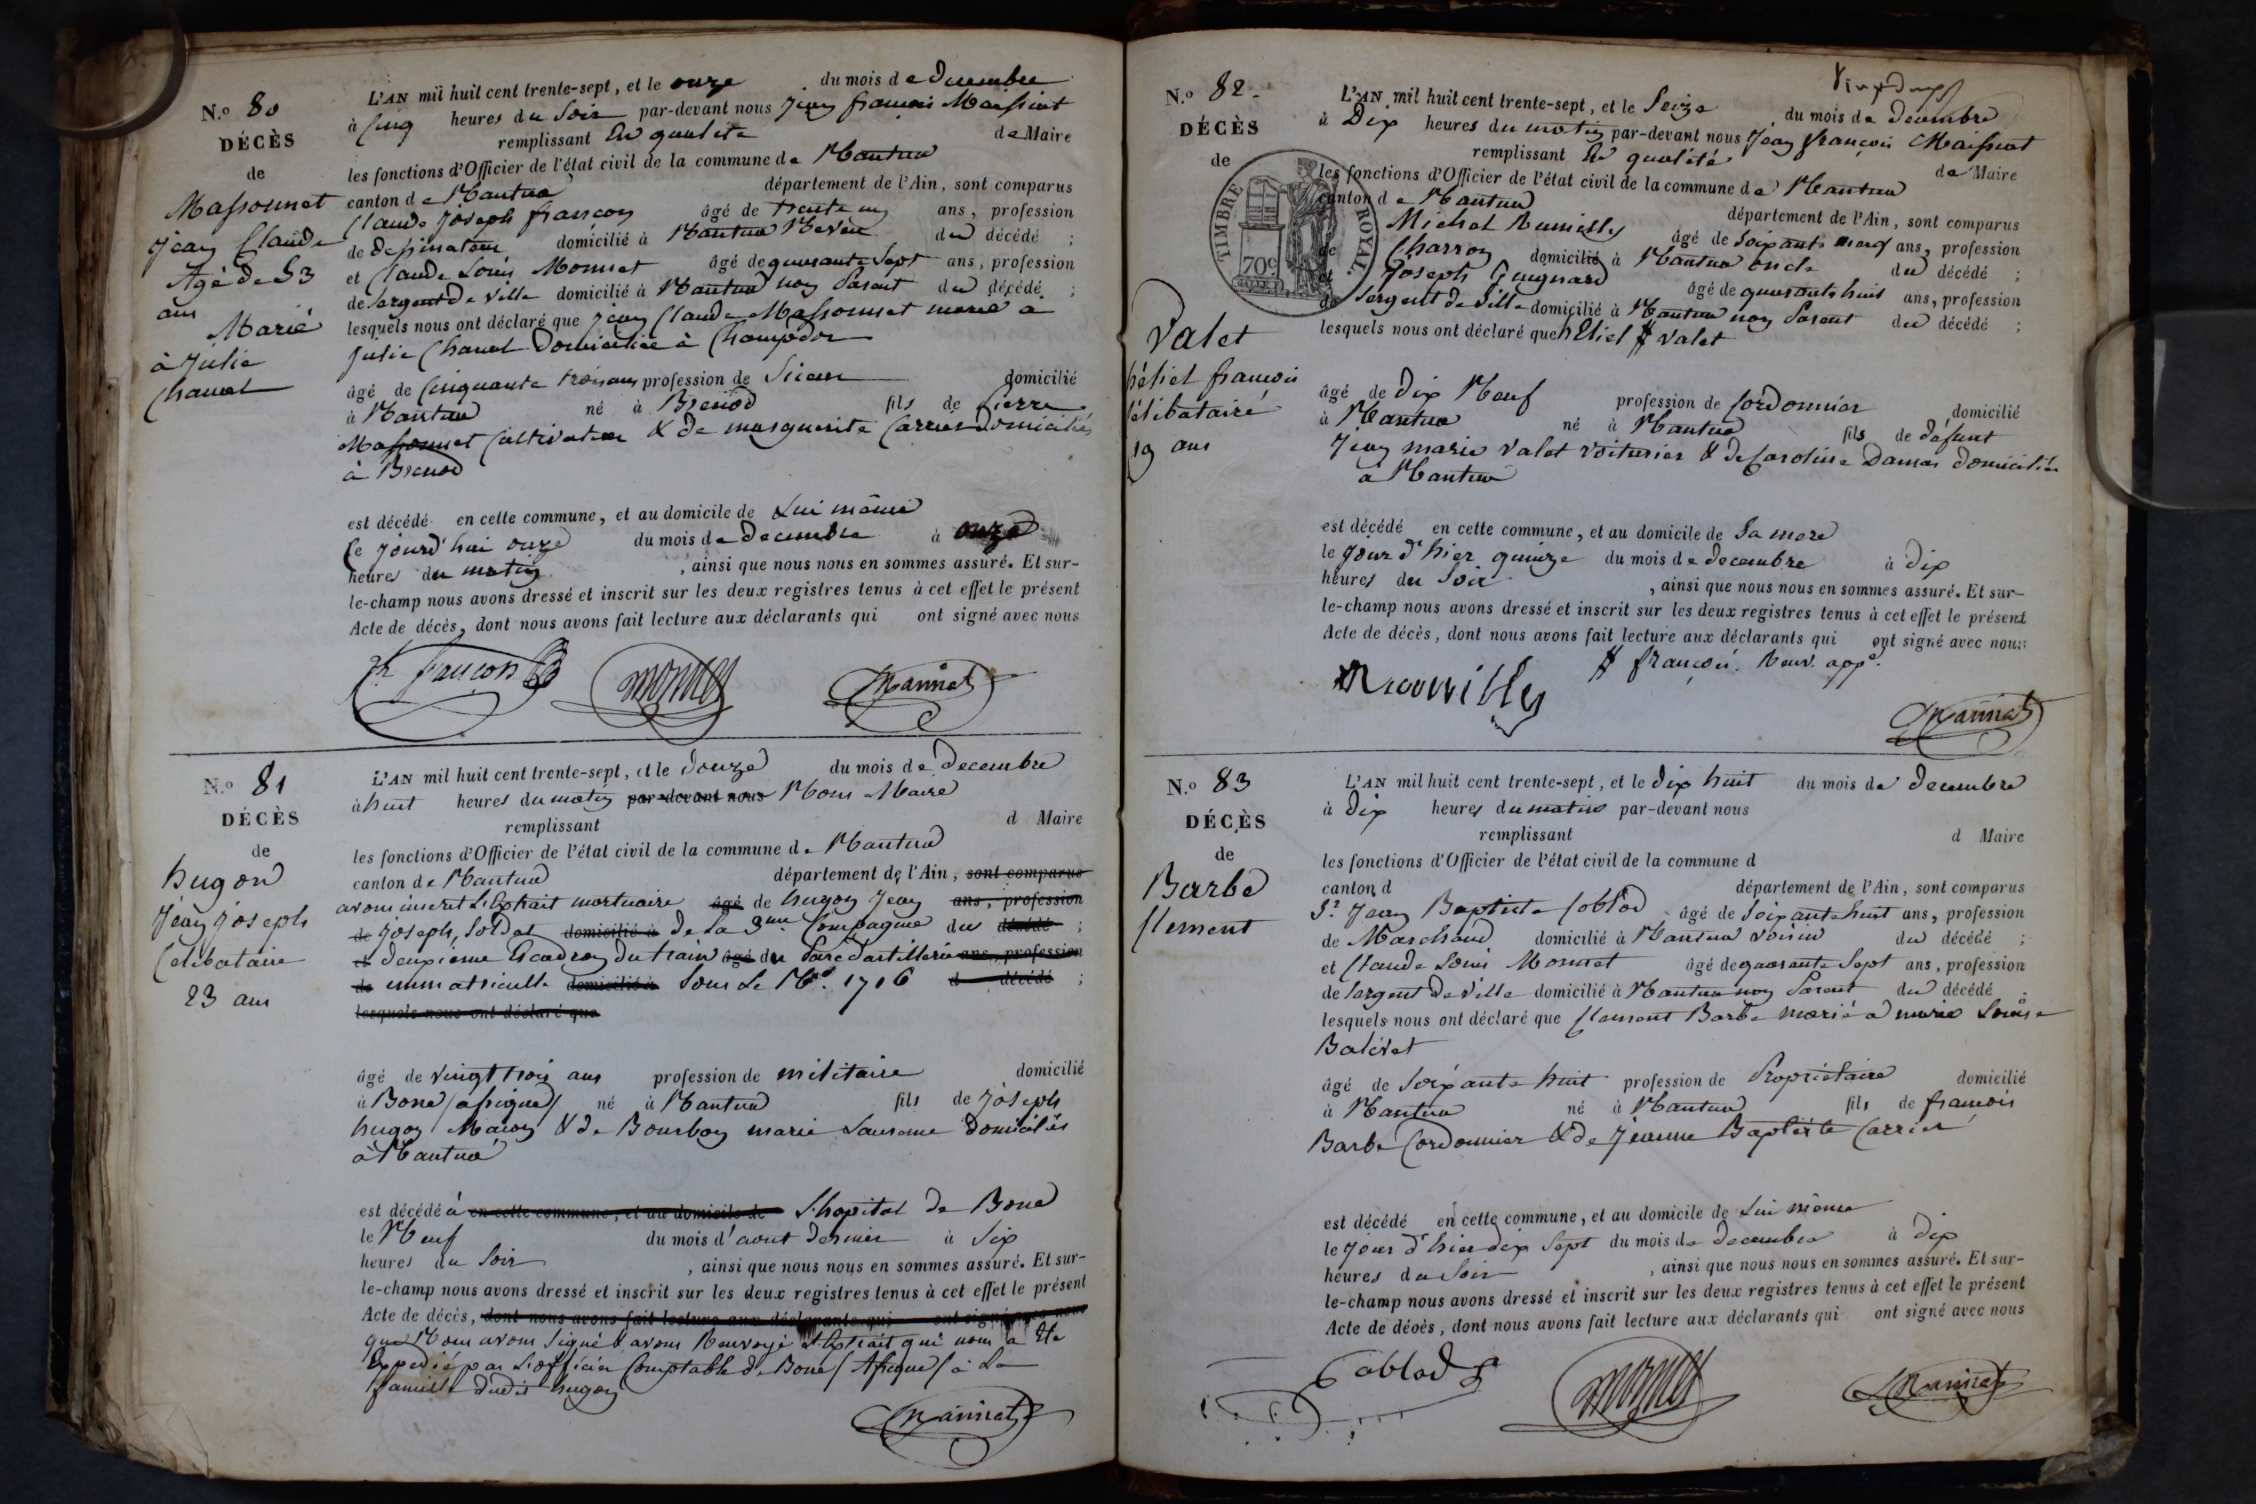 N.º 80
DÉCÈS
de
Massonnet
Jean Claude
Agé de 53
ans
Marié
à Julie
Chanel
L'AN mil huit cent trente-sept, et le onze du mois de decembre
à cinq heures du Soir par-devant nous Jean françois Maissiat
remplissant En qualité de Maire
les fonctions d'Officier de l'état civil de la commune de Nantua
canton de Nantua département de l'Ain, sont comparus
Claude Joseph françon âgé de trente un ans, profession
de dessinateur domicilié à Nantua Neveu du décédé ;
et Claude Louis Monnet âgé de quarante Sept ans, profession
de Sergent de Ville domicilié à Nantua non Parent du décédé ;
lesquels nous ont déclaré que Jean Claude Massonnet marié à
Julie Chanel Domiciliée à Champdor
âgé de Cinquante trois ans profession de Scieur domicilié
à Nantua né à Brenod fils de Pierre
Massonnet Cultivateur & de marguerite Carrier Domiciliés
à Brenod
est décédé en cette commune, et au domicile de Lui même
Ce Jourd'hui onze du mois de decembre à onze
heures du matin, ainsi que nous nous en sommes assuré. Et sur-
le-champ nous avons dressé et inscrit sur les deux registres tenus à cet effet le présent
Acte de décès, dont nous avons fait lecture aux déclarants qui ont signé avec nous
françon monnet Maissiat
N.º 81
DÉCÈS
de
hugon
Jean Joseph
Celibataire
23 ans
L'AN mil huit cent trente-sept, et le douze du mois de decembre
à huit heures du matin par-devant nous Nous Maire
remplissant d Maire
les fonctions d'Officier de l'état civil de la commune de Nantua
canton de Nantua département de l'Ain, sont comparus
avons inscrit L'Extrait mortuaire âgé de hugon Jean ans, profession
de Joseph, Soldat domicilié à De La 3me Compagnie du décédé ;
et deuxieme Escadron du train âgé du Parc d'artillerie ans, profession
de immatriculé domicilié à Sous Le No. 1716 d décédé ;
lesquels nous ont déclaré que
âgé de vingt trois ans profession de militaire domicilié
à Bone (afrique) né à Nantua fils de Joseph
hugon Maçon & de Bourbon marie Laurence Domiciliés
à Nantua
est décédé à en cette commune, et au domicile de L'hopital de Bone
le Neuf du mois d'aout dernier à Six
heures du Soir, ainsi que nous nous en sommes assuré. Et sur-
le-champ nous avons dressé et inscrit sur les deux registres tenus à cet effet le présent
Acte de décès, dont nous avons fait lecture aux déclarants qui ont signé avec nous
que Nous avons Signé & avons Renvoyé L'Extrait qui nous a Eté
Expedié par L'officier Comptable de Bone (Afrique) à La
famille dudit hugon
Maissiat
N.º 82
DÉCÈS
de
TIMBRE ROYAL.
70c
Valet
héliel françois
célibataire
19 ans
L'AN mil huit cent trente-sept, et le Seize du mois de decembre
à Dix heures du matin par-devant nous Jean françois Maissiat
remplissant En qualité de Maire
les fonctions d'Officier de l'état civil de la commune de Nantua
canton de Nantua département de l'Ain, sont comparus
Michel Rumilly âgé de Soixante neuf ans, profession
de Charron domicilié à Nantua oncle du décédé ;
et Joseph Guignard âgé de quarante huit ans, profession
de Sergent de Ville domicilié à Nantua non Parent du décédé ;
lesquels nous ont déclaré que hEliel # Valet
âgé de dix Neuf profession de Cordonnier domicilié
à Nantua né à Nantua fils de défunt
Jean marie Valet voiturier & de Caroline Damas domiciliée
à Nantua
est décédé en cette commune, et au domicile de Sa mere
le Jour d'hier quinze du mois de decembre à dix
heures du Soir, ainsi que nous nous en sommes assuré. Et sur-
le-champ nous avons dressé et inscrit sur les deux registres tenus à cet effet le présent
Acte de décès, dont nous avons fait lecture aux déclarants qui ont signé avec nous
# françois. Renv. appé.
Maissiat
N.º 83
DÉCÈS
de
Barbe
Clement
L'AN mil huit cent trente-sept, et le dix huit du mois de decembre
à dix heures du matin par-devant nous
remplissant d Maire
les fonctions d'Officier de l'état civil de la commune d
canton d département de l'Ain, sont comparus
Sr Jean Baptiste Coblod âgé de Soixante huit ans, profession
de Marchand domicilié à Nantua voisin du décédé ;
et Claude Louis Monnet âgé de quarante Sept ans, profession
de Sergent de Ville domicilié à Nantua non Parent du décédé
lesquels nous ont déclaré que Clement Barbe marié à marie Louise
Balivet
âgé de Soixante huit profession de Propriétaire domicilié
à Nantua né à Nantua fils de francois
Barbe Cordonnier & de Jeanne Baptiste Carrier
est décédé en cette commune, et au domicile de Lui même
le Jour d'hier dix Sept du mois de decembre à dix
heures du Soir, ainsi que nous nous en sommes assuré. Et sur-
le-champ nous avons dressé et inscrit sur les deux registres tenus à cet effet le présent
Acte de décès, dont nous avons fait lecture aux déclarants qui ont signé avec nous
Coblod monnet Maissiat